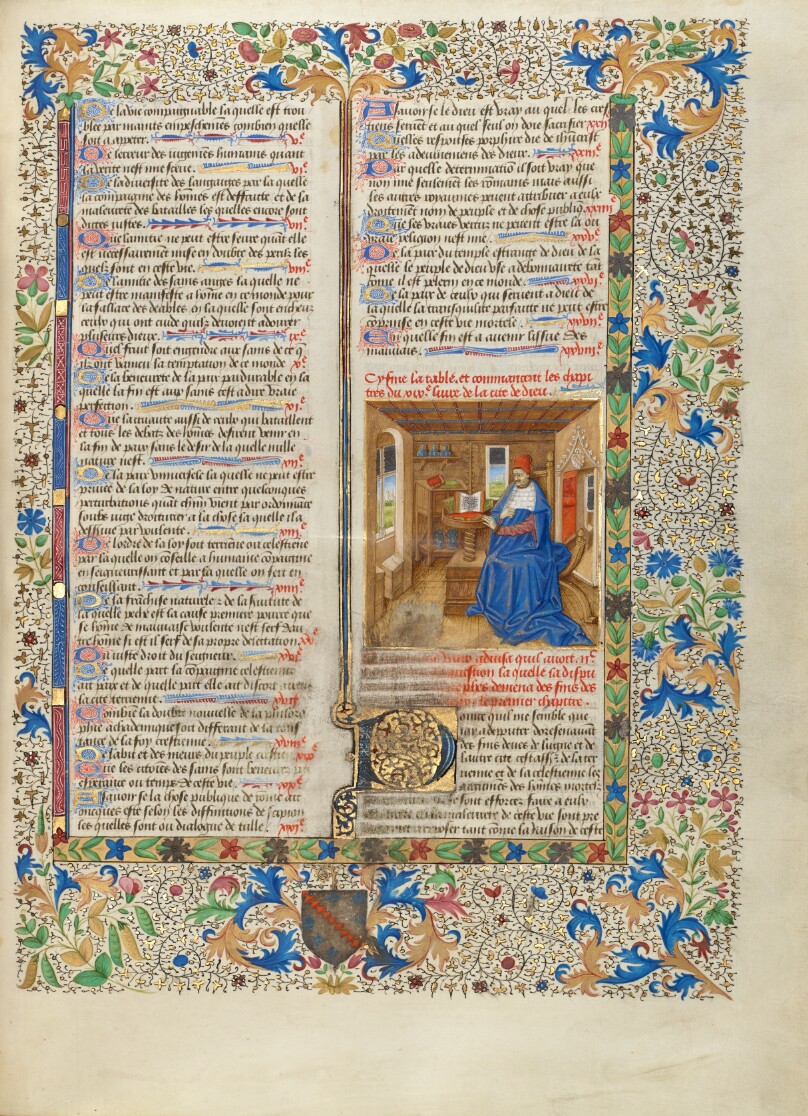 De la vie compaignable la quelle est trou
blee par maints empeschemens combien quelle
soit a appeter. vᵉ.
De lerreur des iugemens humains quant
la verite nest mie sceue. viᵉ.
De la diversite des langaiges par la quelle
la compaignie des hommes est deffraicte et de la
maleurete des batailles les quelles encore sont
dittes iustes.
Que lamitie ne peut estre seure quant elle
est necessairement mise en doubte des perilz les
quelz sont en ceste vie. viiiᵉ.
De lamitie des sains anges la quelle ne
peut estre manifeste a home en ce monde pour
la fallace des deables en la quelle sont encheus
ceulx qui ont cuide quilz devoient adourer
pluseurs dieux. ixᵉ.
Quel fruit soit engendre aux sains de ce q
ilz ont vaincu la temptation de ce monde xᵉ.
De la beneurete de la paix pardurable en la
quelle la fin est aux sains cest a dire vraie
perfection. xiᵉ.
Que la cruaute aussi de ceulx qui bataillent
et tous les debatz des homes desirent venir en
la fin de paix sans le desir de la quelle nulle
nature nest. xiiᵉ.
De la paix universele la quelle ne peut estre
privee de la loy de nature entre quelconques
perturbations quant chun vient par ordonnance
soubz iuge droiturier a la chose la quelle il a
desservi par voulente. xiiiᵉ.
De lordre de la loy soit terrienne ou celestienne
par la quelle on conseille a humaine compaignie
en seigneurissant et par la quelle on sert en
conseillant. xiiiiᵉ.
De la franchise naturele et de la servitute de
la quelle pechie est la cause premiere pource que
se home de mauvaise voulente nest serf dau
tre home si est il serf de sa propre delectation. xvᵉ.
Du iuste droit du seigneur. xviᵉ.
De quelle part la compaignie celestienne
ait paix et de quelle part elle ait discort avec
la cite terrienne. xviiᵉ.
Combien la doubte nouvelle de la philozo
phie achademique soit differant de la cons
tance de la foy crestienne. xviiiᵉ.
De labit et des meurs du peuple crestien xixᵉ.
Que les citoiens des sains sont beneurez par
esperance ou temps de ceste vie. xxᵉ.
Assavoir se la chose publique de romme ait
oncques este selon les diffinitions de scipion
les quelles sont ou dialogue de tulle. xxiᵉ.
Assavoir se le dieu est vray au quel les cres
tiens servent et au quel seul on doie sacrifier xxiiᵉ
Quelles responses porphire die de ihucrist
par les advinemens des dieux. xxiiiᵉ.
Par quelle determination il soit vray que
non mie seulement les romains mais aussi
les autres royaumes peuent attribuer a eulx
droitement nom de peuple et de chose publiq. xxiiiiᵉ
Que les vraies vertuz ne peuent estre la ou
vraie religion nest mie. xxvᵉ.
De la paix du temple estrange de dieu de la
quelle le peuple de dieu use a debonnairete tant
come il est pelerin en ce monde. xxviᵉ.
De la paix de ceulx qui servent a dieu de
la quelle la tranquilite parfaitte ne peut estre
comprise en ceste vie mortele. xxviiᵉ.
En quelle fin est a avenir lissue des
mauvais. xxviiiᵉ.
Cy fine la table. et commancent les chapi
tres du xixᵉ livre de la cite de dieu.
adviset quil avoit. iiᶜ.
question la quelle la dispu
des fins des
le premier chapitre.
Pource quil me semble que
iay a desputer doresenavant
des fins deues de lugne et de
lautre cite cestassr de la ter
rienne et de la celestienne les
argumens des homes mortelz
se sont efforcez faire a eulx
beneurete de ceste vie sont pre
a exposer tant come la raison de ceste